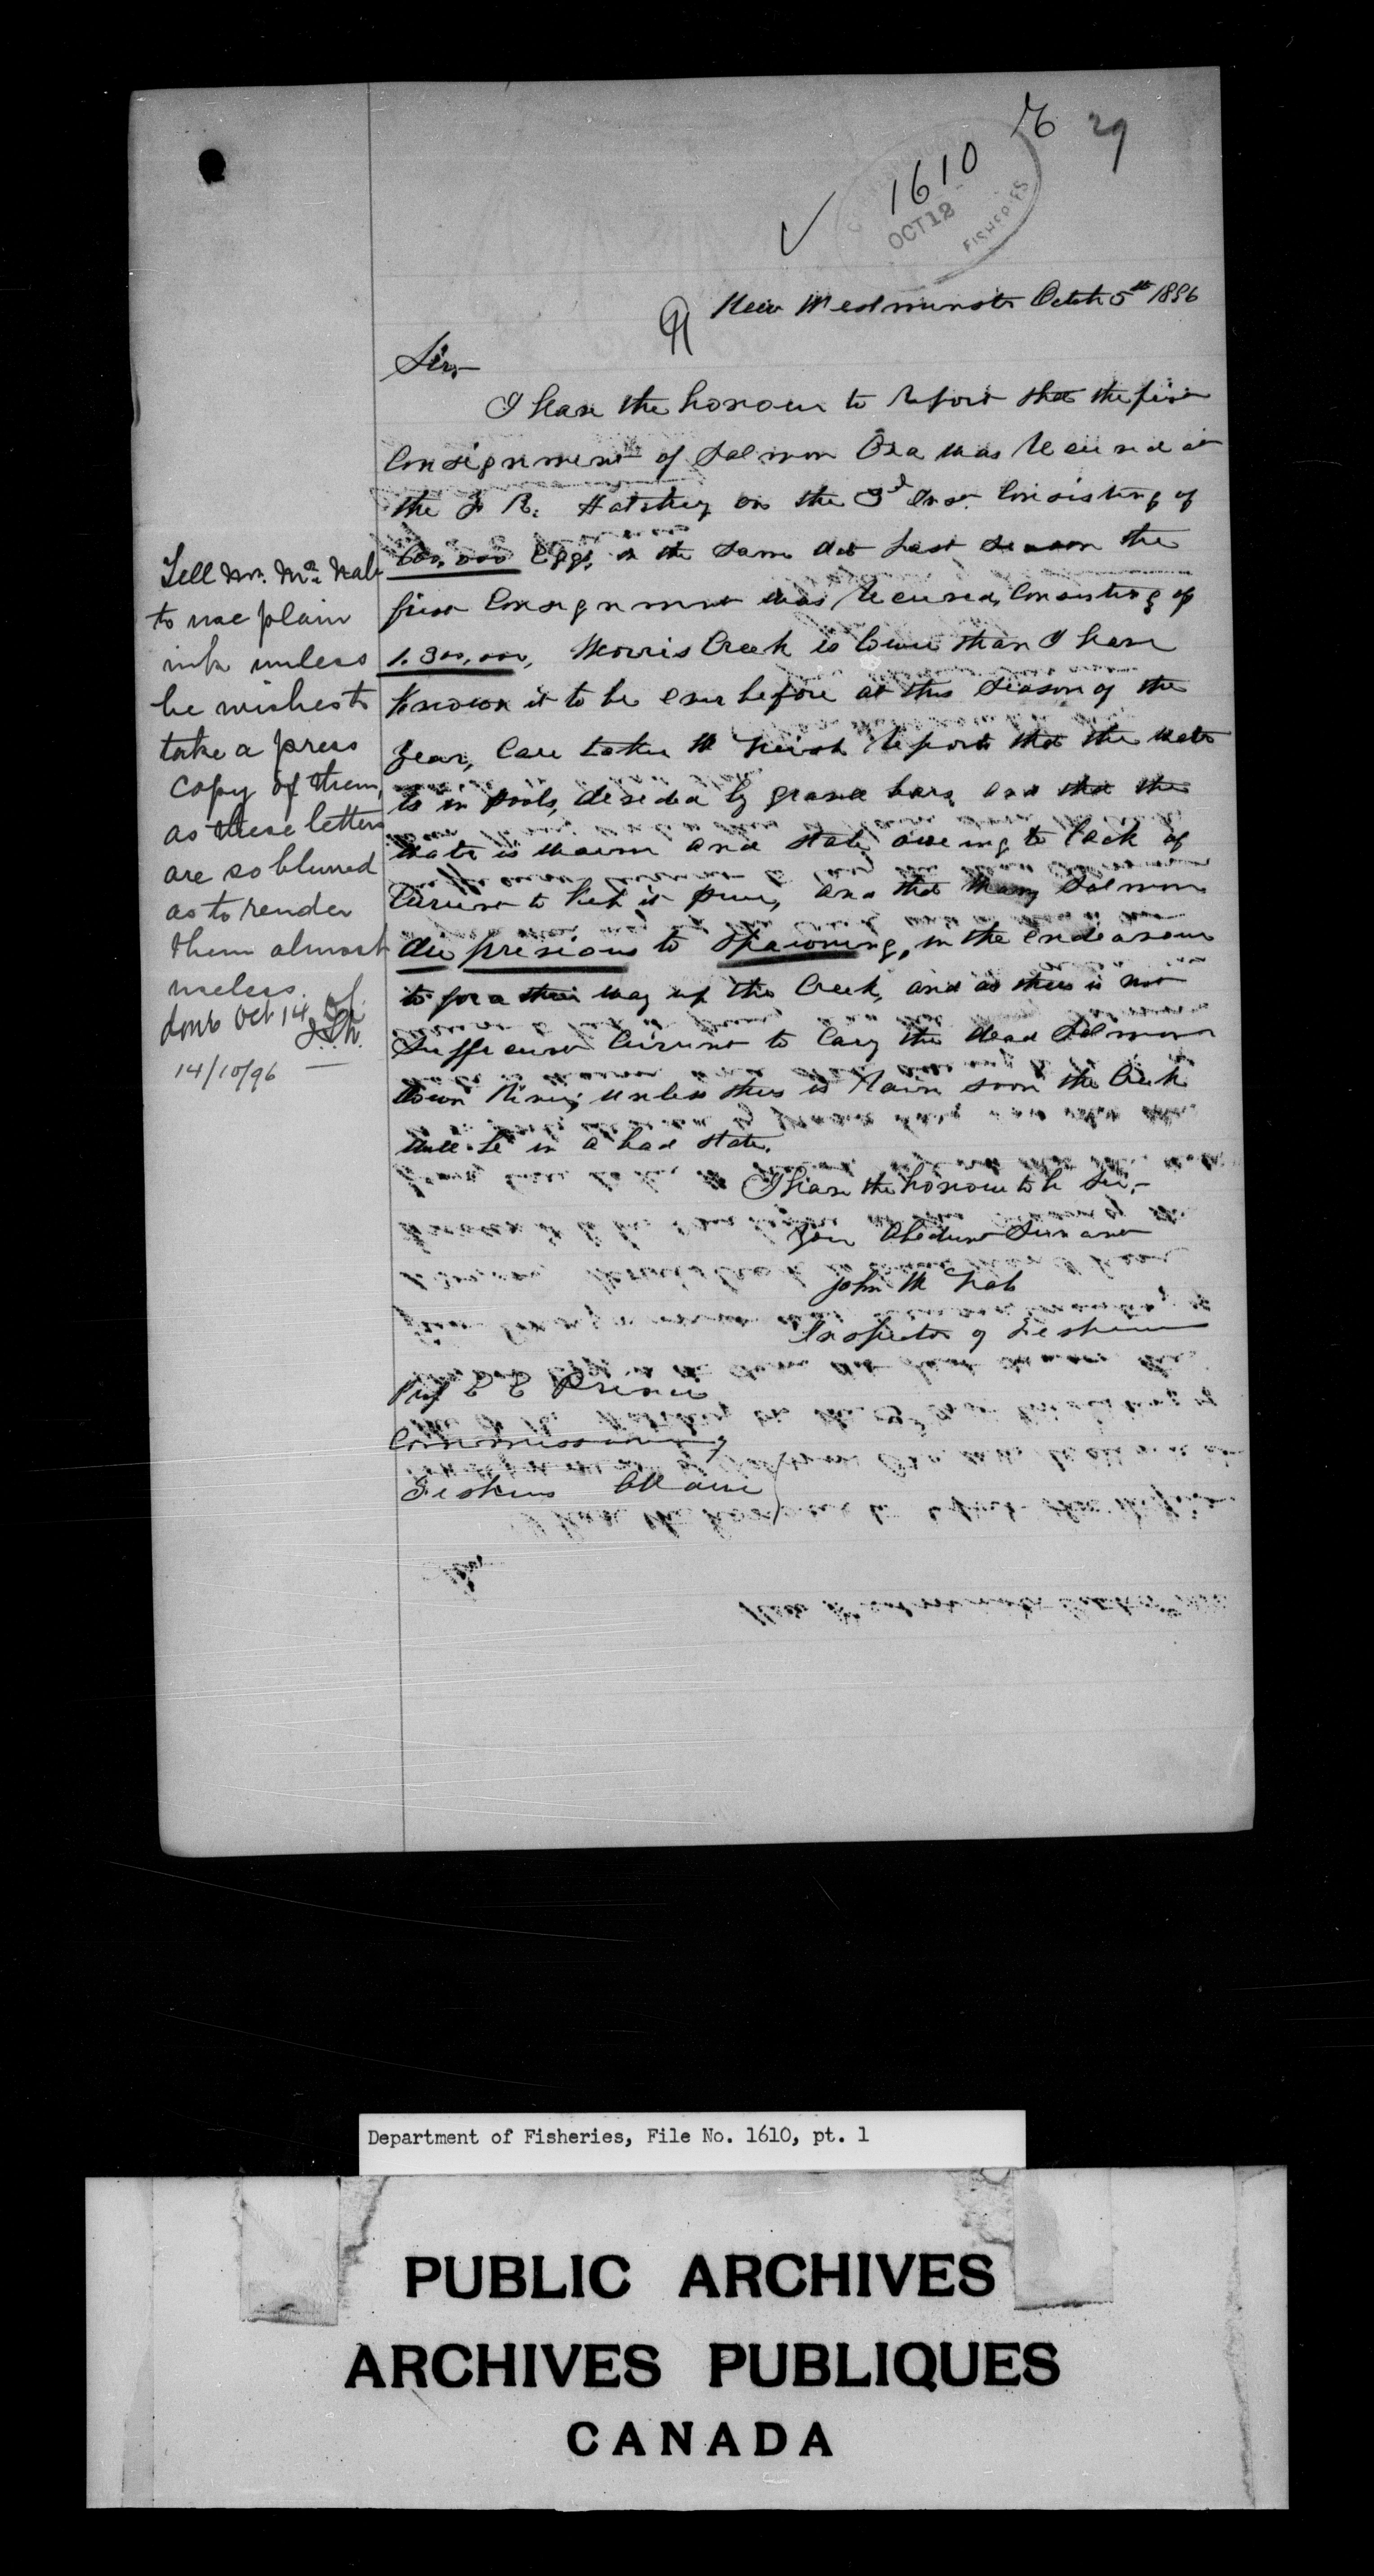 29
1610
OCT 12
FISHERIES
New Westminster Octob 5th 1896
Sir,-
I have the honour to report that the first
Consignment of Salmon Ova was received at
the F R. Hatchery on the 3d Inst. Consisting of
600,000 Eggs, on the same date last season the
first Consignment was received, Consisting of
1.300,000, Morris Creek is lower than I have
known it to be ever before at this season of the
year, Care taker reports that the water
is in pools, divided by gravel bars and that the
water is warm and stale owing to lack of
Current to keep it pure, and that many Salmon
die previous to spawning, in the endeavour
to force their way up the Creek, and as there is not
sufficient Current to Carry the dead Salmon
down River; unless there is rain soon the Creek
will be in a bad state.
I have the honour to be Sir,-
Your Obedient Servant
John McNab
Inspector of Fisheries
Prof E E Prince
Commissioner of
Fisheries Ottawa
Tell Mr. McNab
to use plain
ink unless
he wishes to
take a press
copy of them,
as these letters
are so blurred
as to render
them almost
useless.
done Oct 14
14/10/96
Department of Fisheries, File No. 1610, pt. 1
PUBLIC ARCHIVES
ARCHIVES PUBLIQUES
CANADA